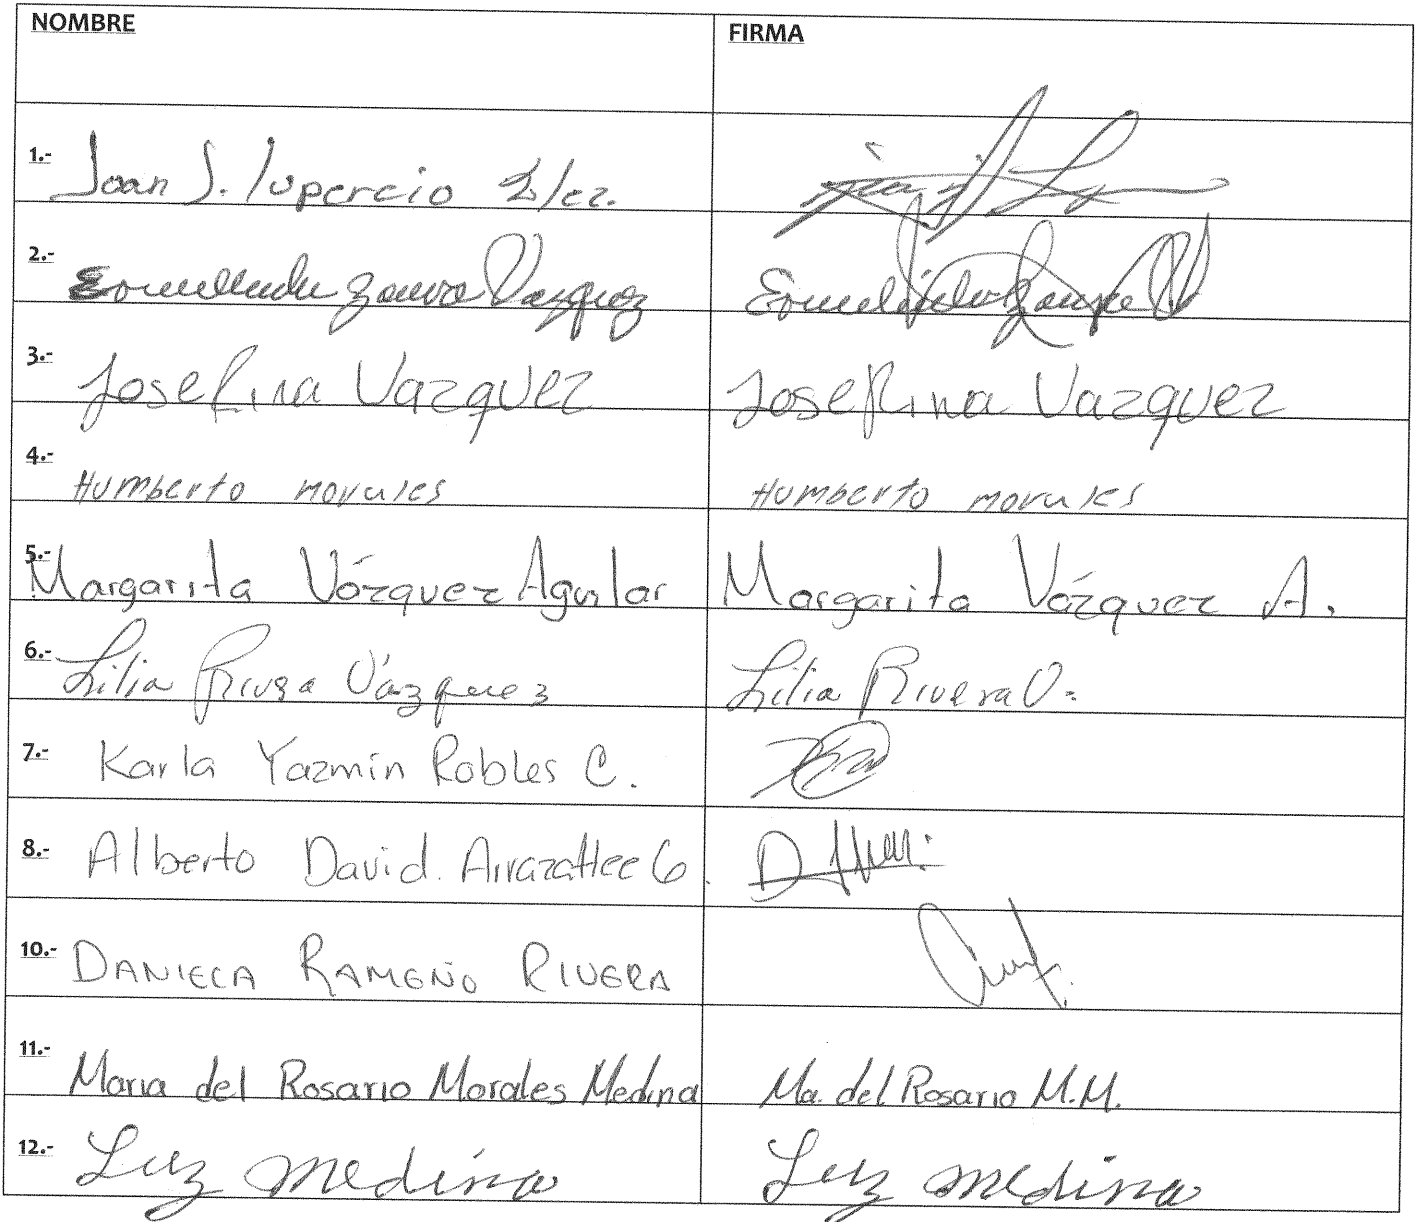 NOMBRE FIRMA
1.- Joan S. lupercio
2.- Vazquez
3.- Josefina Vazquez Josefina Vazquez
4.- Humberto morales Humberto morales
5.- Margarita Vázquez Aguilar Margarita Vázquez A.
6.- Lilia Rivera Vázquez Lilia Rivera V.
7.- Karla Yazmín Robles C.
8.- Alberto David G.
10.- DANIELA RAMEÑO RIVERA
11.- Maria del Rosario Morales Medina Ma. del Rosario M.M.
12.- Luz Medina Luz Medina